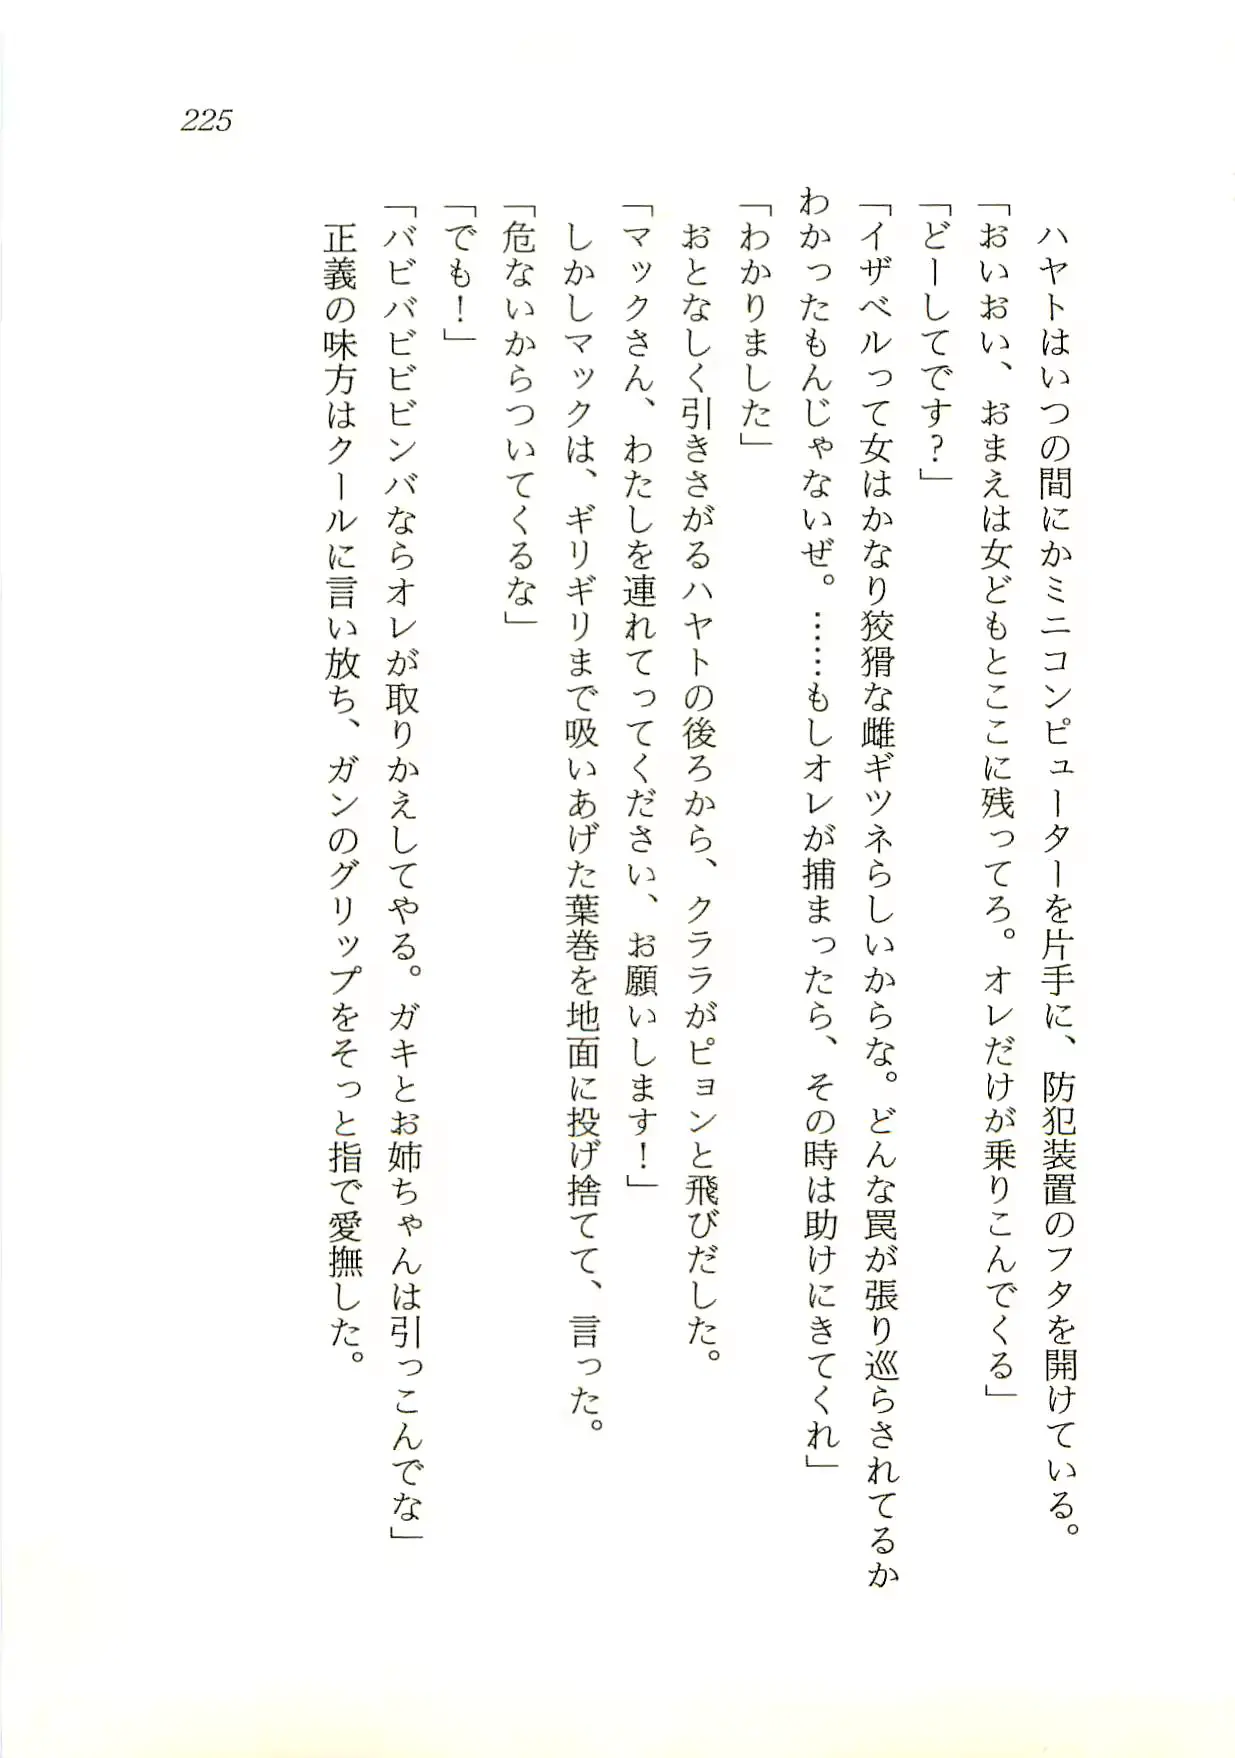 225
ハヤトはいつの間にかミニコンピューターを片手に、防犯装置のフタを開けている。
「おいおい、おまえは女どもとここに残ってろ。オレだけが乗りこんでくる」
「どーしてです?」
「イザベルって女はかなり狡猾な雌ギツネらしいからな。どんな罠が張り巡らされてるか
わかったもんじゃないぜ。……もしオレが捕まったら、その時は助けにきてくれ」
「わかりました」
おとなしく引きさがるハヤトの後ろから、クララがピョンと飛びだした。
「マックさん、わたしを連れてってください、お願いします!」
しかしマックは、ギリギリまで吸いあげた葉巻を地面に投げ捨てて、言った。
「危ないからついてくるな」
「でも!」
「バビバビビビンバならオレが取りかえしてやる。ガキとお姉ちゃんは引っこんでな」
正義の味方はクールに言い放ち、ガンのグリップをそっと指で愛撫した。